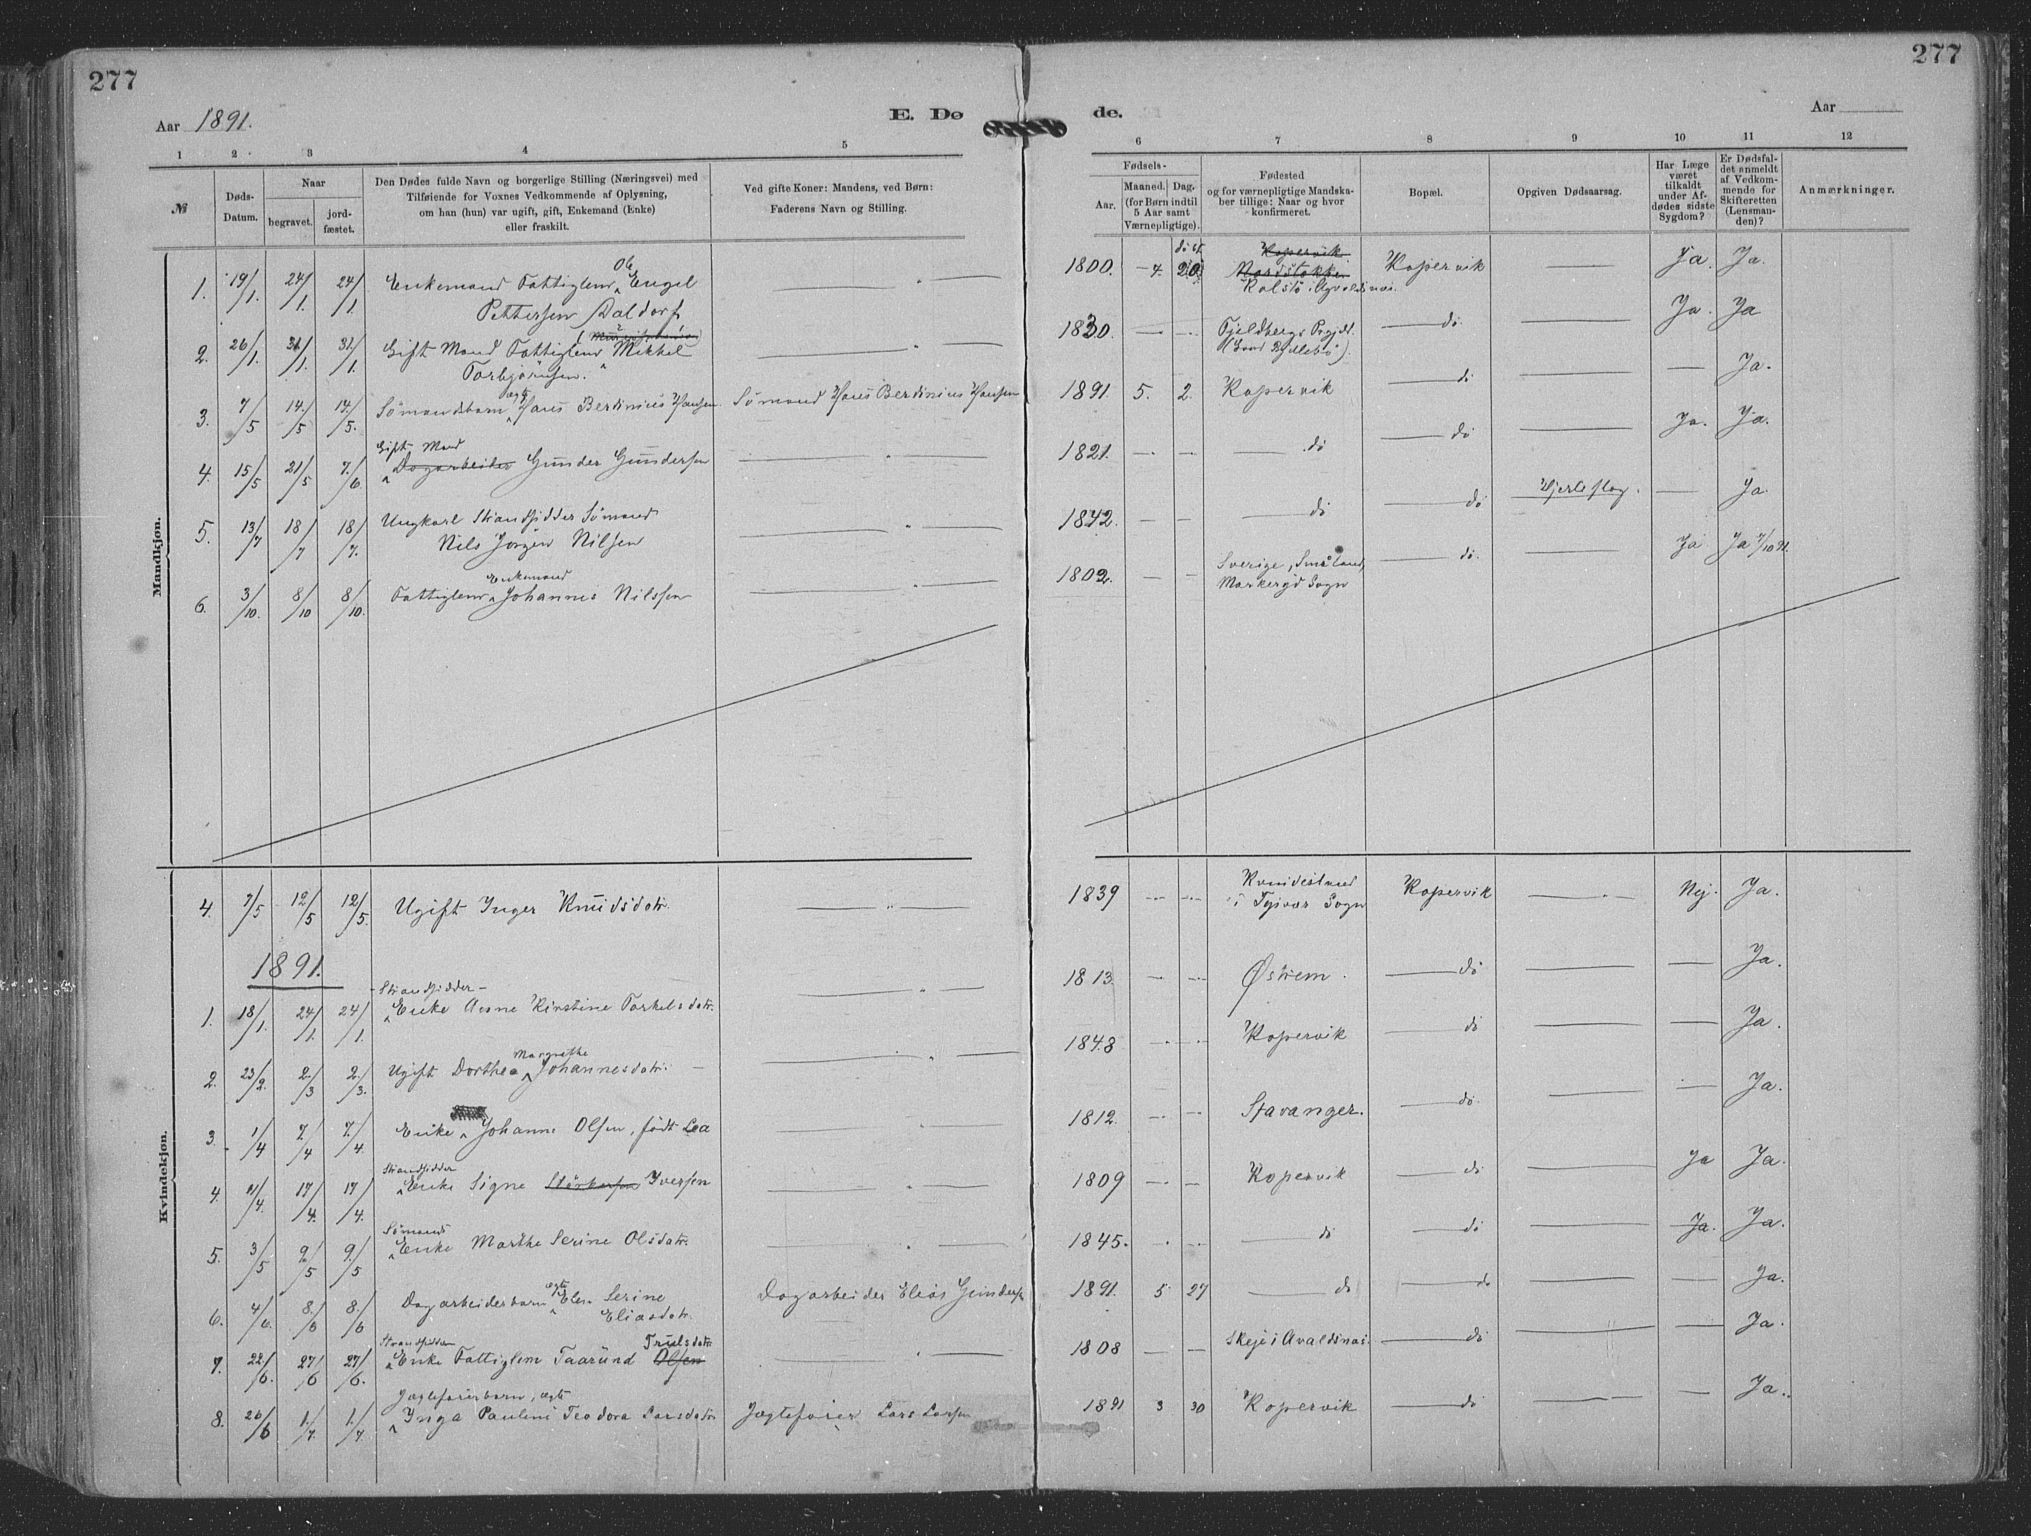 277
277
Aar 1891.
E. Dø
de.
Aar
1 2 3 4 5 6 7 8 9 10 11 12
№
Døds-Datum.
Naar
begravet.
jordfæstet.
Den Dødes fulde Navn og borgerlige Stilling (Næringsvei) med
Tilføiende for Voxnes Vedkommende af Oplysning,
om han (hun) var ugift, gift, Enkemand (Enke)
eller fraskilt.
Ved gifte Koner: Mandens, ved Børn:
Faderens Navn og Stilling.
Fødsels-
Aar.
Maaned. Dag.
(for Børn indtil
5 Aar samt
Værnepligtige).
Fødested
og for værnepligtige Mandska-
ber tillige: Naar og hvor
konfirmeret.
Bopæl.
Opgiven Dødsaarsag.
Har Læge
været
tilkaldt
under Af-
dødes sidste
Sygdom?
Er Dødsfal-
det anmeldt
af Vedkom-
mende for
Skifteretten
(Lensman-
den)?
Anmærkninger.
Mandkjøn.
1. 19/1. 24/1. 24/1. Enkemand Fattiglem Engel
Pettersen Daldorf — " — 1800. Kopervik Kopervik — Ja. Ja.
2. 26/1. 31/1. 31/1. Gift Mand Fattiglem Mikkel
Torbjørnsen. — " — 1830. — — Fjeldbergs Prgjld. — do — Ja. Ja
3. 7/5 14/5 14/5. Sømandsbarn ægte Hans Berdinius Hansen. Sømand Hans Berdinius Hansen 1891. 5. 2. Kopervik — do — — Ja.
4. 15/5 21/5 7/6 Gift Mand
Dagarbeider Gunder Gundersen — " — 1821. — — — do — do — Ja. Ja.
5. 13/7 18/7 18/7. Ungkarl Strandsidder Sømand
Nils Jørgen Nilsen — " — 1842. — — — do — do Hjerteslag. — Ja.
6. 3/10. 8/10 8/10. Fattiglem Enkemand Johannes Nilssen — " — 1802. — — Sverige, Småland,
Markeryd Sogn — do. — Ja. Ja 7/10 91.
Kvindekjøn.
4. 7/5 12/5 12/5. Ugift Inger Knudsdatr. — " — 1839 — — i Tysvær Sogn Kopervik — Nej. Ja.
1891.
1. 18/1. 24/1. 24/1. Strandsidder-
Enke Asne Kirstine Torkelsdatr. — " — 1813. — — Østrem. — do — Ja.
2. 23/2. 2/3 2/3. Ugift Dorthea Margrethe Johannesdatr. — " — 1848 — — Kopervik — do — — Ja.
3. 1/4 7/4 7/4. Enke Johanne Olsen, født Lea — " — 1812. — — Stavanger. — do. — — Ja.
4. 11/4. 17/4. 17/4. Strandsidder
Enke Signe Iversen — " — 1809 — — Kopervik — do — Ja Ja.
5. 3/5 9/5 9/5 Sømands
Enke Marthe Serine Olsdatr. — " — 1845. — — — do — do — Ja. Ja.
6. 4/6. 8/6 8/6 Dagarbeiderbarn ægte Elen Serine
Eliasdatr. Dagarbeider Elias Gundersen 1891. 5 27 — do — do — — Ja.
7. 22/6. 27/6 27/6. Strandsidder
Enke Fattiglem Taarund Olsen Trulsdatr — " — 1808 — — Skeje i Avaldsnes. — do — — Ja.
8. 26/6 1/7. 1/7. Jægteførerbarn, ægte
Inga Pauleni Teodora Larsdatr Jægtefører Lars Larsen 1891 3 30 Kopervik — do — — Ja.